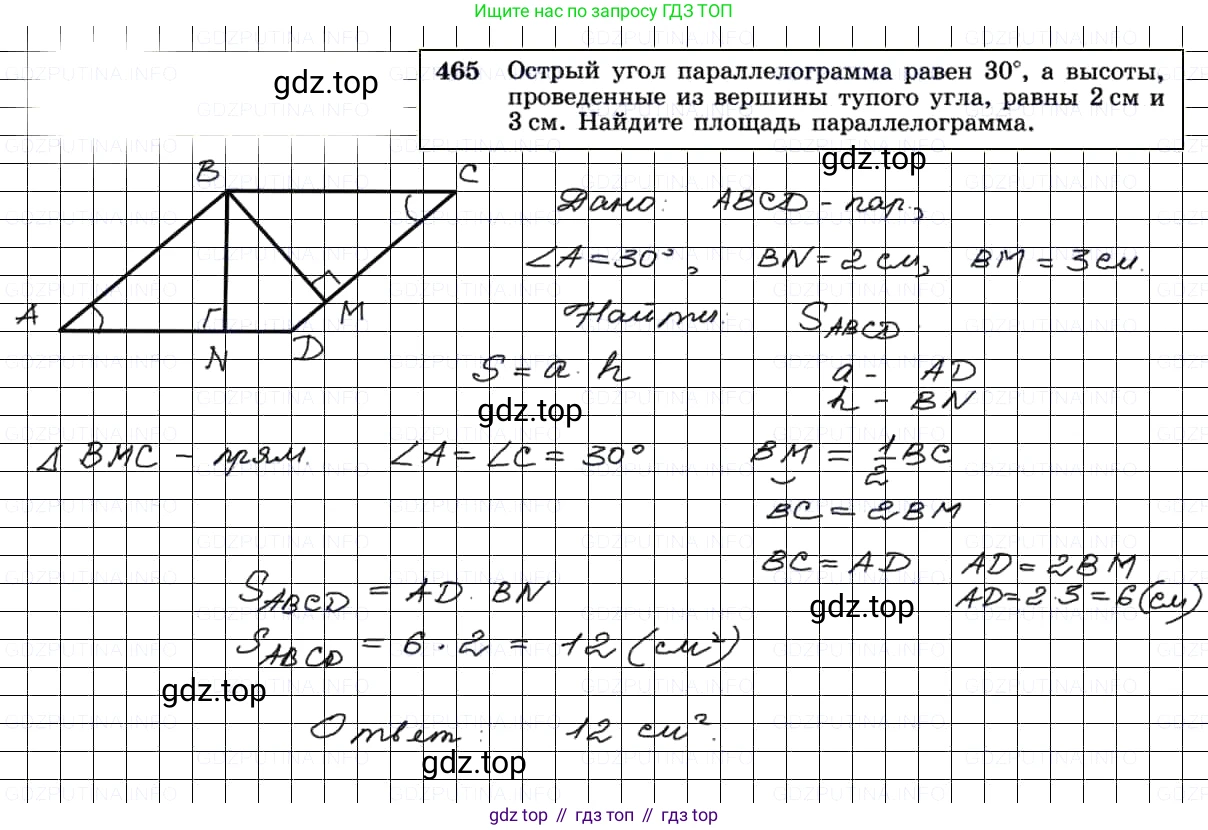 Ищите нас по запросу ГДЗ ТОП
465 Острый угол параллелограмма равен 30°, а высоты,
проведенные из вершины тупого угла, равны 2 см и
3 см. Найдите площадь параллелограмма.
gdz.top
gdz.top
B
C
A
M
N
D
Дано: ABCD - пар.,
∠A = 30°, BN = 2 см, BM = 3 см.
Найти: S_ABCD.
S = a · h
a - AD
h - BN
gdz.top
Δ BMC - прям. ∠A = ∠C = 30° BM = 1/2 BC
BC = 2BM
BC = AD AD = 2BM
S_ABCD = AD · BN
AD = 2·3 = 6 (см)
gdz.top
S_ABCD = 6 · 2 = 12 (см²)
gdz.top
Ответ: 12 см².
gdz.top
gdz top // гдз топ // гдз top
GDZPUTINA.INFO